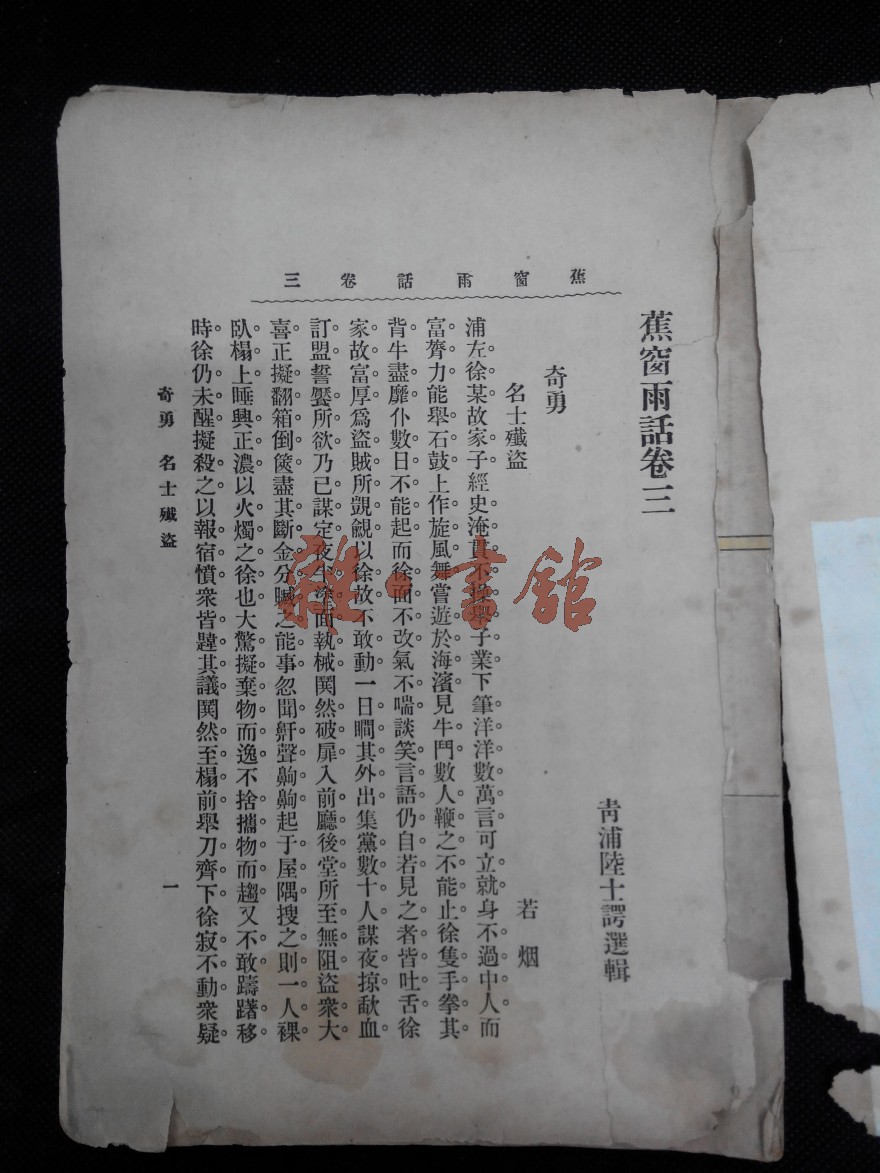 蕉窗雨話卷三
蕉窗雨話卷三
青浦陸士諤選輯
奇勇
名士殲盜
若烟
浦左徐某故家子經史淹貫不操舉子業下筆洋洋數萬言可立就身不過中人而
富膂力能舉石鼓上作旋風舞嘗遊於海濱見牛鬥數人鞭之不能止徐隻手拳其
背牛盡靡仆數日不能起而徐面不改氣不喘談笑言語仍自若見之者皆吐舌徐
家故富厚爲盜賊所覬覦以徐故不敢動一日瞯其外出集黨數十人謀夜掠歃血
訂盟誓饜所欲乃已謀定夜半塗面執械鬨然破扉入前廳後堂所至無阻盜衆大
喜正擬翻箱倒篋盡其斷金分贓之能事忽聞鼾聲齁齁起于屋隅搜之則一人裸
臥榻上睡興正濃以火燭之徐也大驚擬棄物而逸不捨攜物而趨又不敢躊躇移
時徐仍未醒擬殺之以報宿憤衆皆韙其議鬨然至榻前舉刀齊下徐寂不動衆疑
奇勇 名士殲盜
一
雜·書館